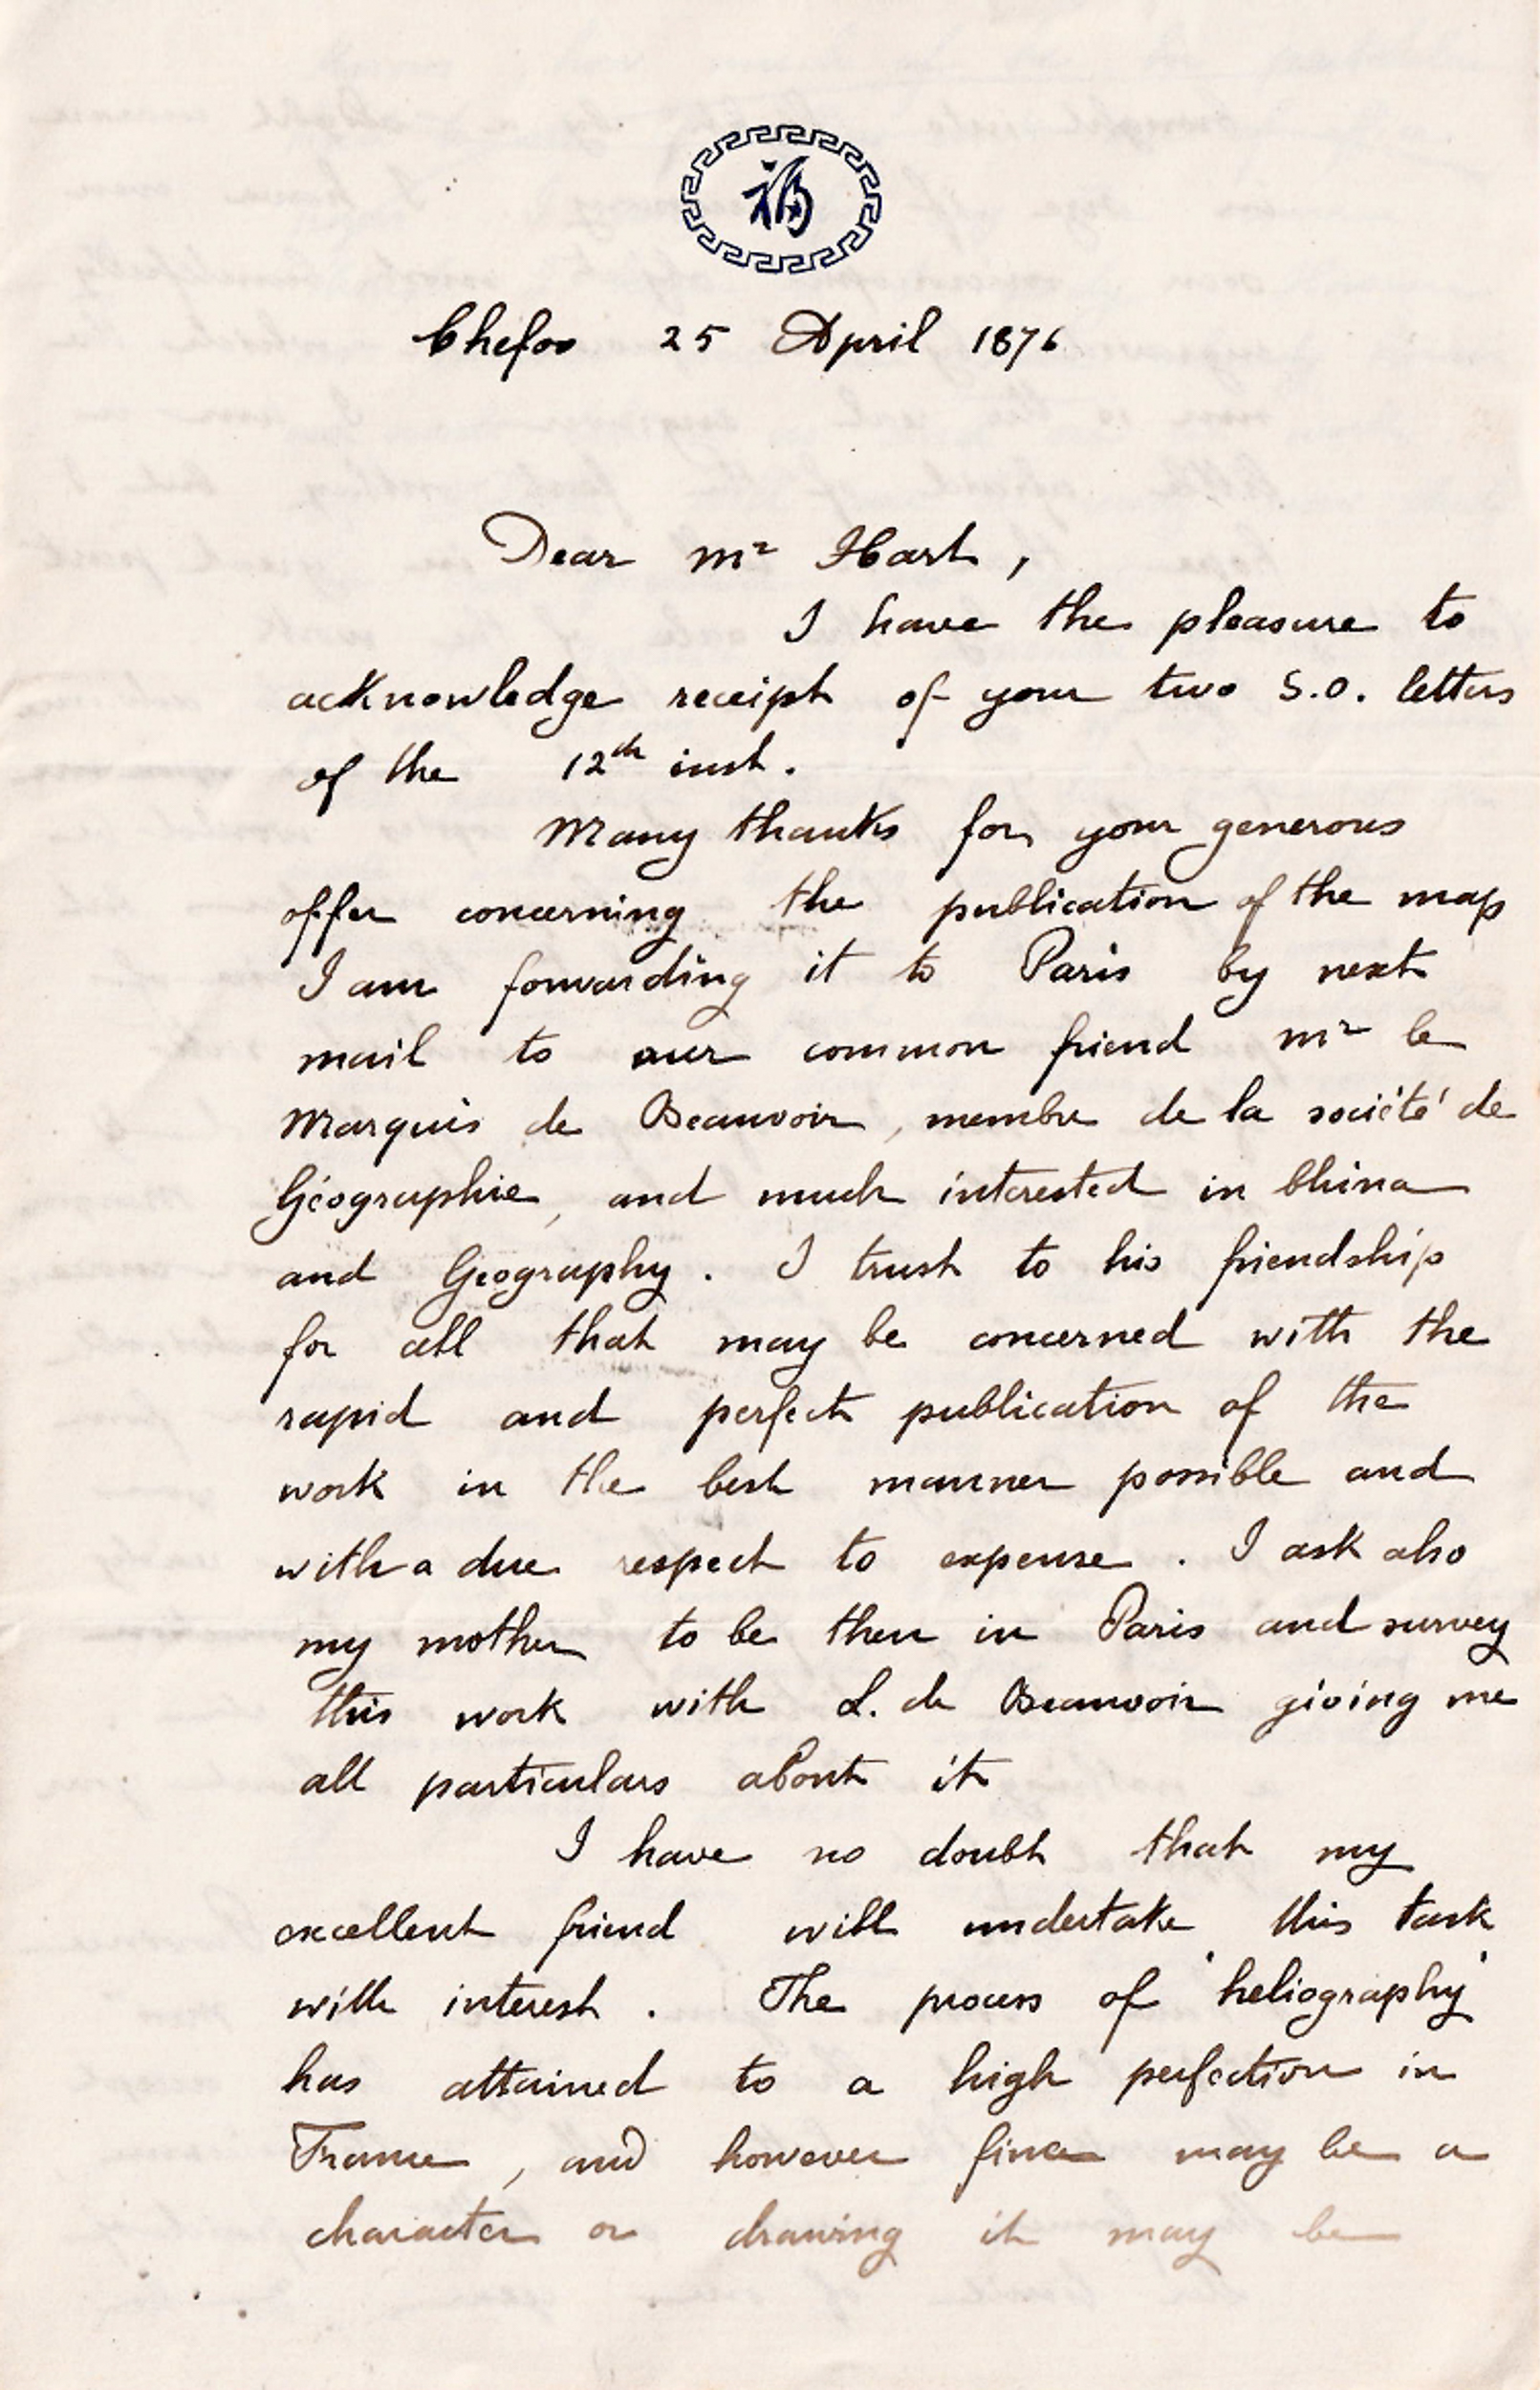 福
Chefoo 25 April 1876
Dear Mr Hart,
I have the pleasure to
acknowledge receipt of your two S.O. letters
of the 12th inst.
Many thanks for your generous
offer concerning the publication of the map
I am forwarding it to Paris by next
mail to our common friend Mr le
Marquis de Beauvoir, membre de la société de
Géographie, and much interested in China
and Geography. I trust to his friendship
for all that may be concerned with the
rapid and perfect publication of the
work in the best manner possible and
with a due respect to expense. I ask also
my mother to be then in Paris and survey
this work with L. de Beauvoir giving me
all particulars about it
I have no doubt that my
excellent friend will undertake this task
with interest. The process of 'heliography'
has attained to a high perfection in
France, and however fine may be a
character or drawing it may be